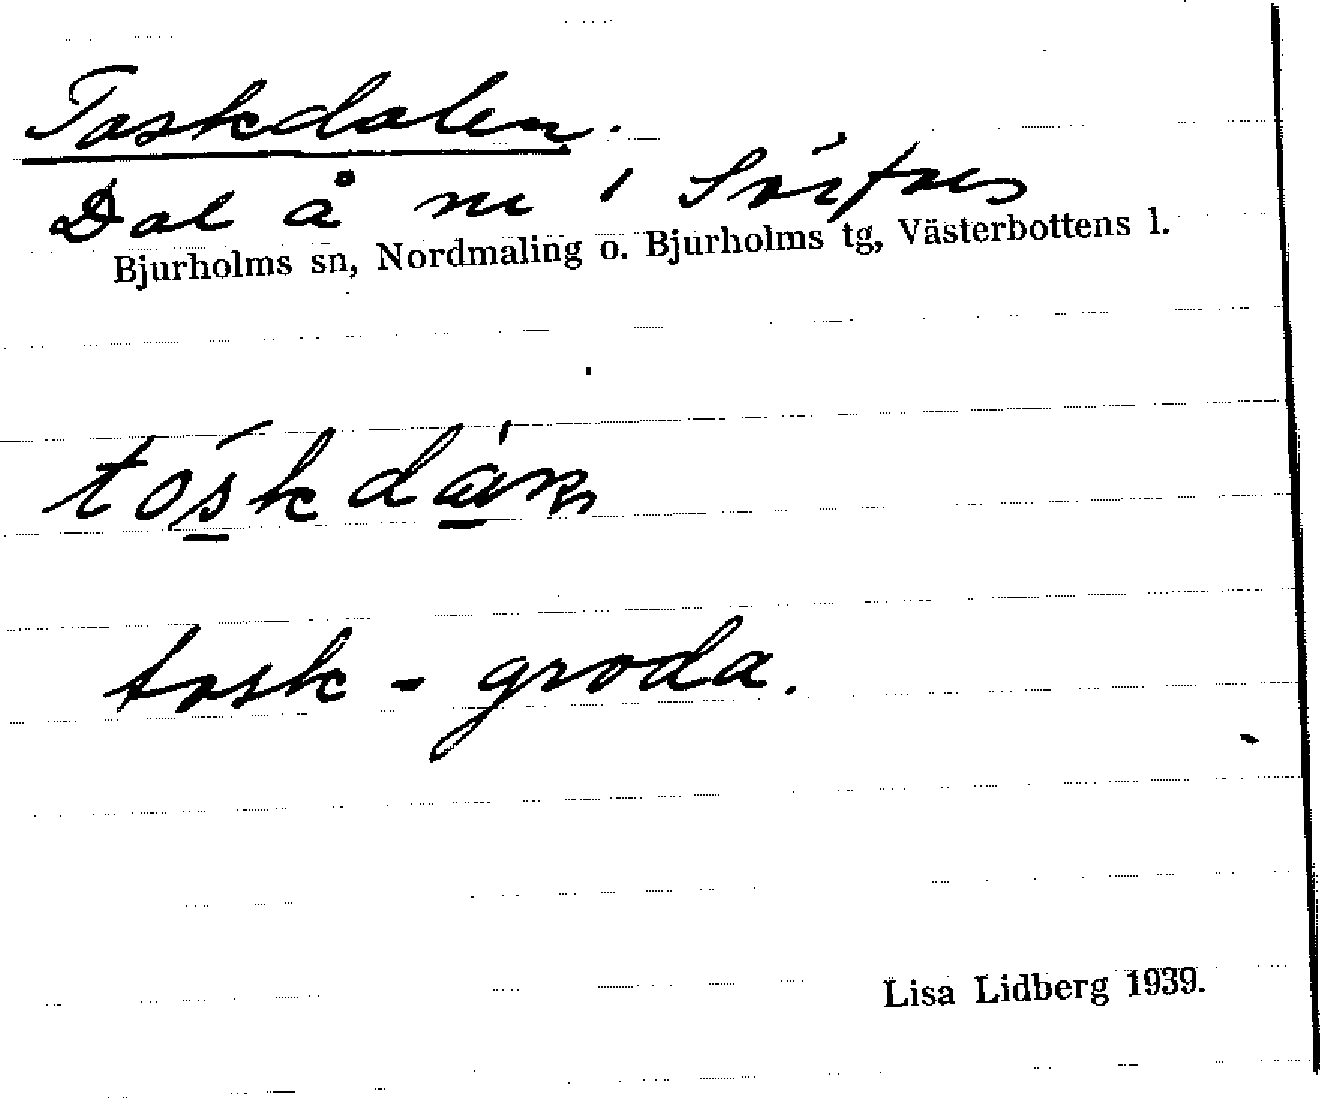 Toskdalen.
Dal å nr 1 Svitnes
Bjurholms sn, Nordmaling o. Bjurholms tg, Västerbottens l.
tosk - groda.
Lisa Lidberg 1939.